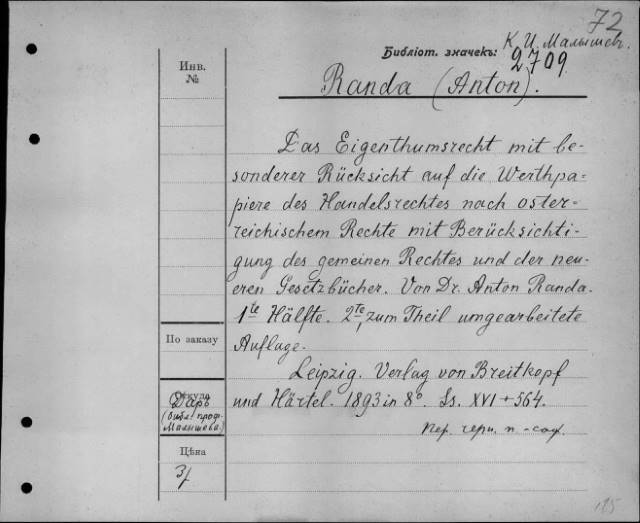 72
К. И. Малышев.
Библіот. значекъ: 2709
Инв.
№
Randa (Anton).
Das Eigenthumsrecht mit be-
sonderer Rücksicht auf die Werthpa-
piere des Handelsrechtes nach öster-
reichischem Rechte mit Berücksichti-
gung des gemeinen Rechtes und der neu-
eren Gesetzbücher. Von Dr. Anton Randa.
1te Hälfte. 2te, zum Theil umgearbeitete
Auflage.
Leipzig. Verlag von Breitkopf
und Härtel. 1893 in 8º. Ss. XVI + 564.
Пер. черн. п-
По заказу
Откуда
Даръ
(библ. проф.
Малышева)
Цѣна
3/